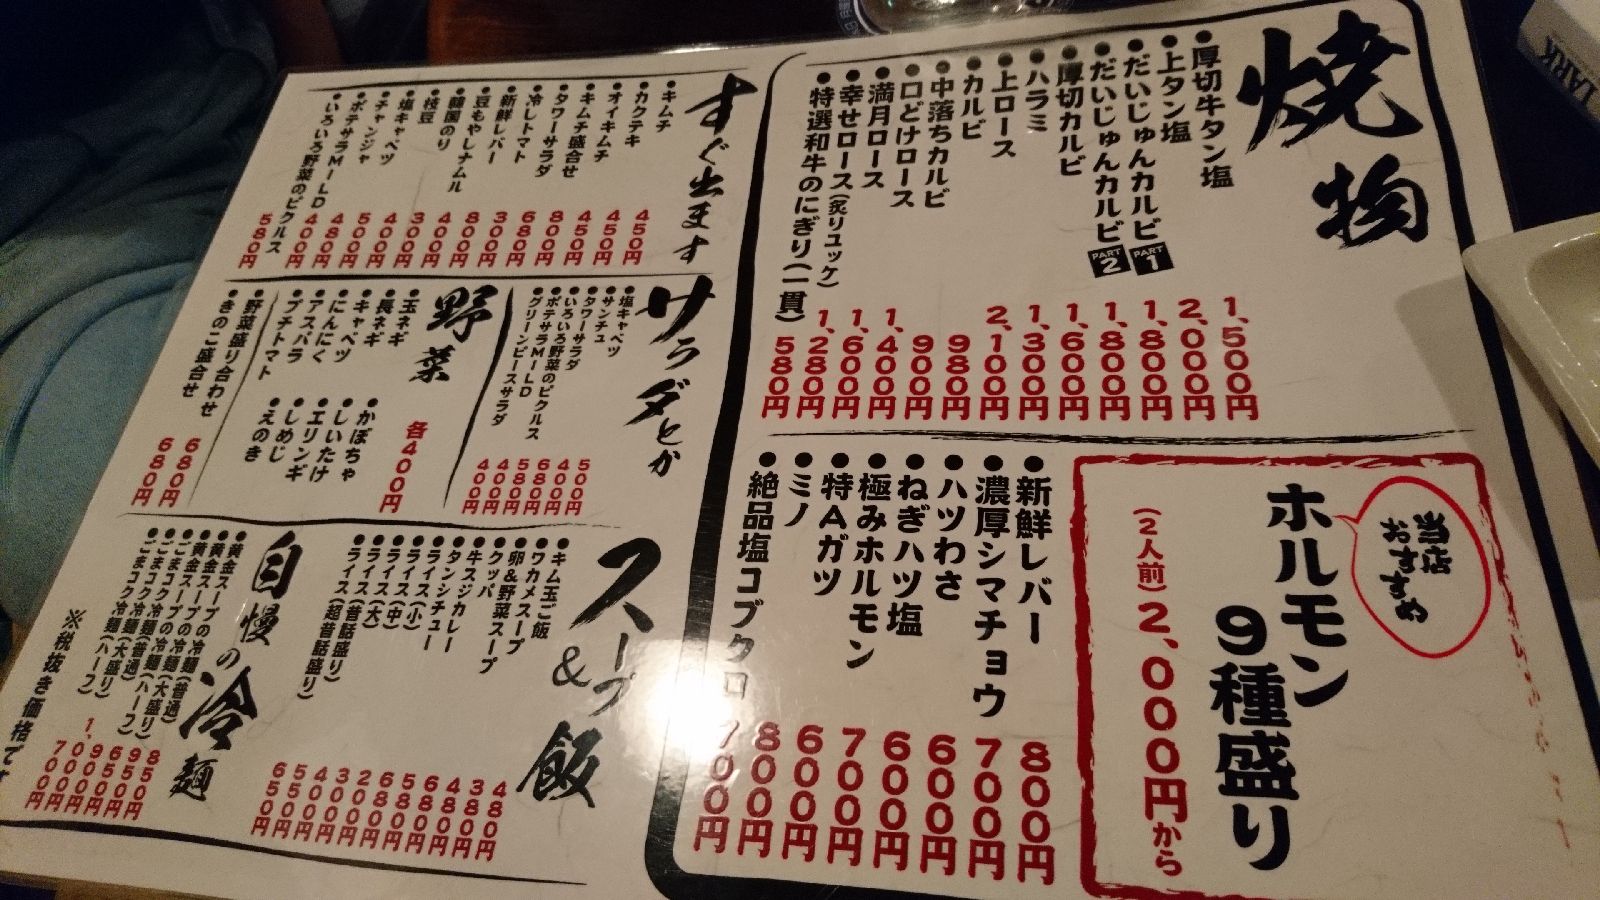 焼物
●厚切牛タン塩 1,500円
●上タン塩 2,000円
●だいじゅんカルビ PART 1 1,800円
●だいじゅんカルビ PART 2 1,800円
●厚切カルビ 1,600円
●ハラミ 1,300円
●上ロース 2,100円
●カルビ 980円
●中落ちカルビ 900円
●口どけロース 1,400円
●満月ロース 1,600円
●幸せロース(炙りユッケ) 1,280円
●特選和牛のにぎり(一貫) 580円
当店おすすめ
ホルモン
9種盛り
(2人前) 2,000円から
●新鮮レバー 800円
●濃厚シマチョウ 700円
●ハツわさ 600円
●ねぎハツ塩 600円
●極みホルモン 700円
●特Aガツ 600円
●ミノ 800円
●絶品塩コブクロ 700円
すぐ出ます
●キムチ 450円
●カクテキ 450円
●オイキムチ 450円
●キムチ盛合せ 800円
●タワーサラダ 680円
●冷しトマト 300円
●新鮮レバー 800円
●豆もやしナムル 400円
●韓国のり 300円
●枝豆 400円
●塩キャベツ 500円
●チャンジャ 480円
●ポテサラMILD 400円
●いろいろ野菜のピクルス 580円
サラダとか
●塩キャベツ 500円
●サンチュ 400円
●タワーサラダ 680円
●いろいろ野菜のピクルス 580円
●ポテサラMILD 400円
●グリーンピースサラダ 400円
野菜
各400円
●玉ネギ
●長ネギ
●キャベツ
●にんにく
●アスパラ
●プチトマト
●かぼちゃ
●しいたけ
●エリンギ
●しめじ
●えのき
●野菜盛り合わせ 680円
●きのこ盛合せ 680円
スープ&飯
●キム玉ご飯 480円
●ワカメスープ 380円
●卵&野菜スープ 480円
●クッパ 680円
●牛スジカレー 580円
●タンシチュー 680円
●ライス(小) 200円
●ライス(中) 300円
●ライス(大) 400円
●ライス(昔話盛り) 550円
●ライス(超昔話盛り) 650円
自慢の冷麺
●黄金スープの冷麺(普通) 850円
●黄金スープの冷麺(大盛り) 950円
●黄金スープの冷麺(ハーフ) 650円
●ごまコク冷麺(普通) 900円
●ごまコク冷麺(大盛り) 1,000円
●ごまコク冷麺(ハーフ) 700円
※税抜き価格です
LARK